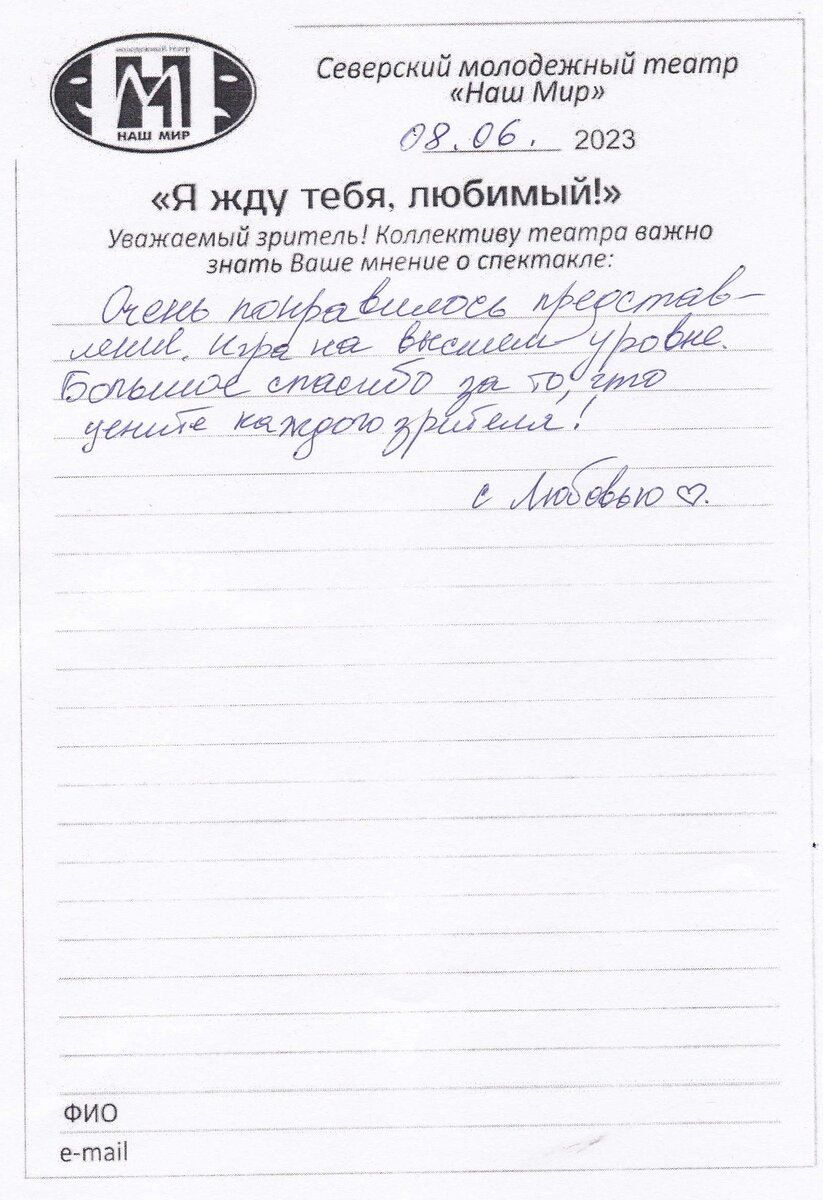 молодежный театр
НАШ МИР
Северский молодежный театр
«Наш Мир»
08.06. 2023
«Я жду тебя, любимый!»
Уважаемый зритель! Коллективу театра важно
знать Ваше мнение о спектакле:
Очень понравилось представ-
ление, игра на высшем уровне.
Большое спасибо за то, что
цените каждого зрителя!
с Любовью ♡.
ФИО
e-mail